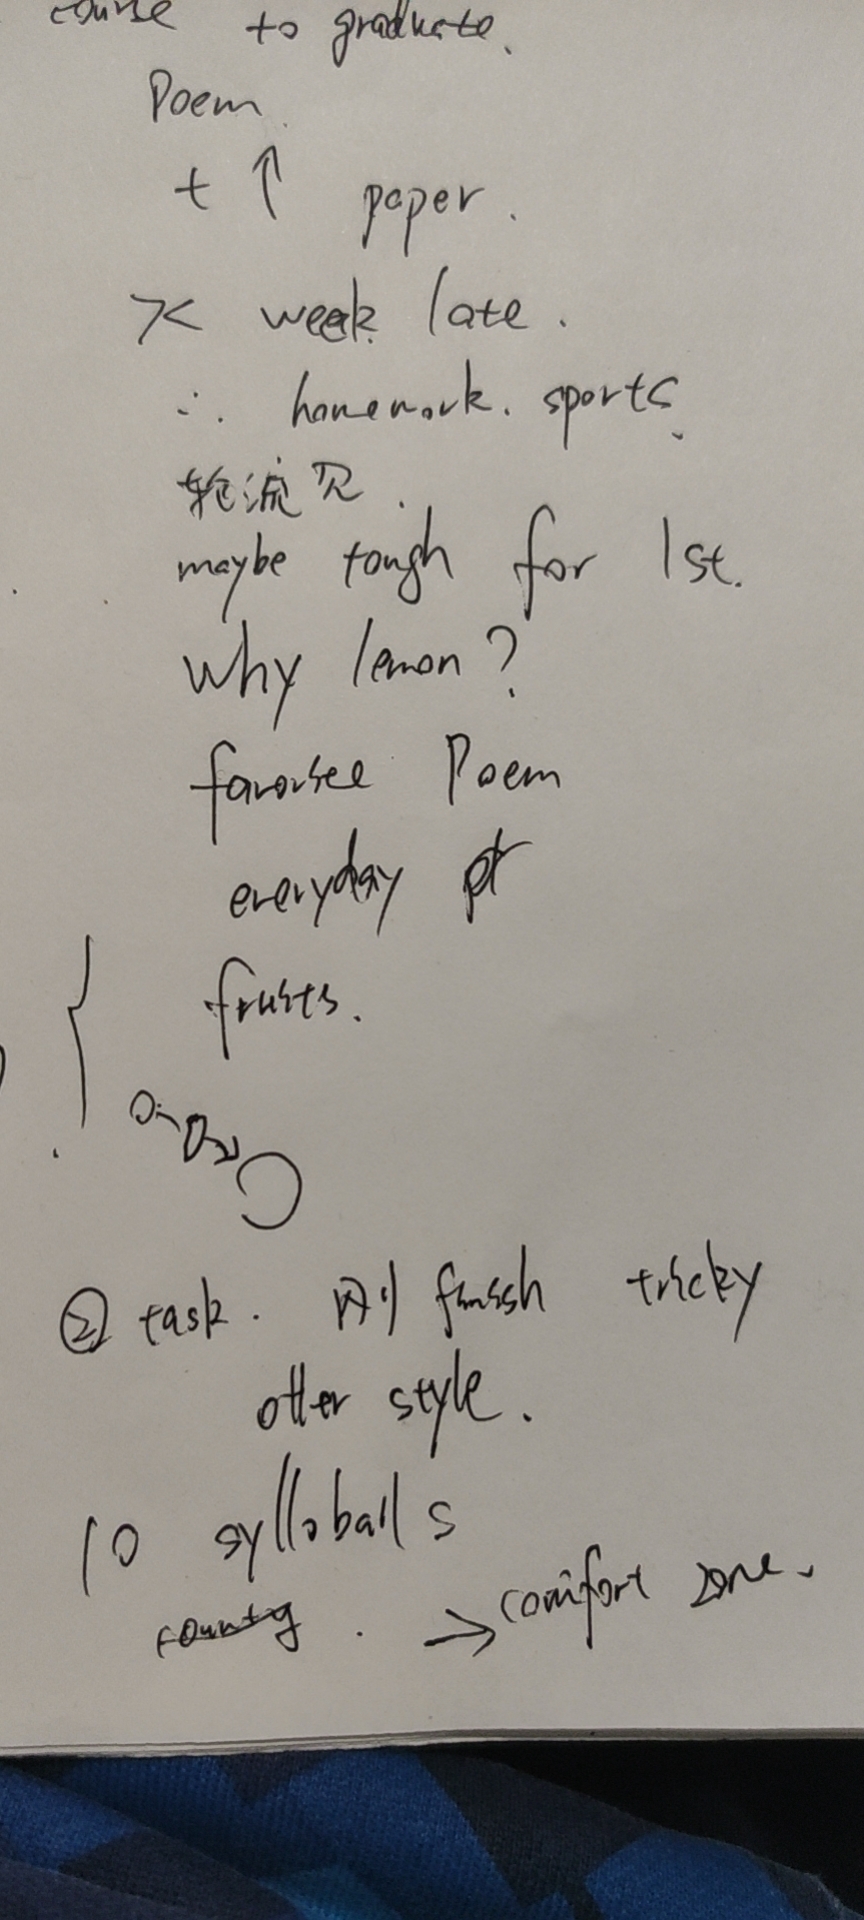 course to graduate.
Poem.
+ ↑ paper.
× week late.
∴ homework. sports.
轮流
maybe tough for 1st.
why lemon?
Poem
everyday
fruits.
② task. finish tricky
other style.
10 ylloballs
→ comfort zone.